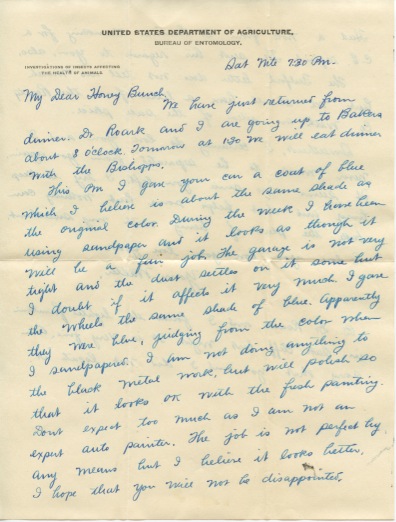 UNITED STATES DEPARTMENT OF AGRICULTURE,
BUREAU OF ENTOMOLOGY.
INVESTIGATIONS OF INSECTS AFFECTING
THE HEALTH OF ANIMALS
Sat Nite 7:30 Pm.
My Dear Honey Bunch,
We have just returned from
dinner. Dr Roark and I are going up to Bakers
about 8 o'clock. Tomorrow at 1:30 we will eat dinner
with the Bishopps.
This Pm I gave your car a coat of blue
which I believe is about the same shade as
the original color. During the week I have been
using sandpaper and it looks as though it
will be a fair job. The garage is not very
tight and the dust settles on it some but
I doubt if it affects it very much. I gave
the wheels the same shade of blue. Apparently
they were blue, judging from the color when
I sandpapered. I am not doing anything to
the black metal work, but will polish so
that it looks OK with the fresh painting.
Dont expect too much as I am not an
expert auto painter. The job is not perfect by
any means but I believe it looks better.
I hope that you will not be disappointed,